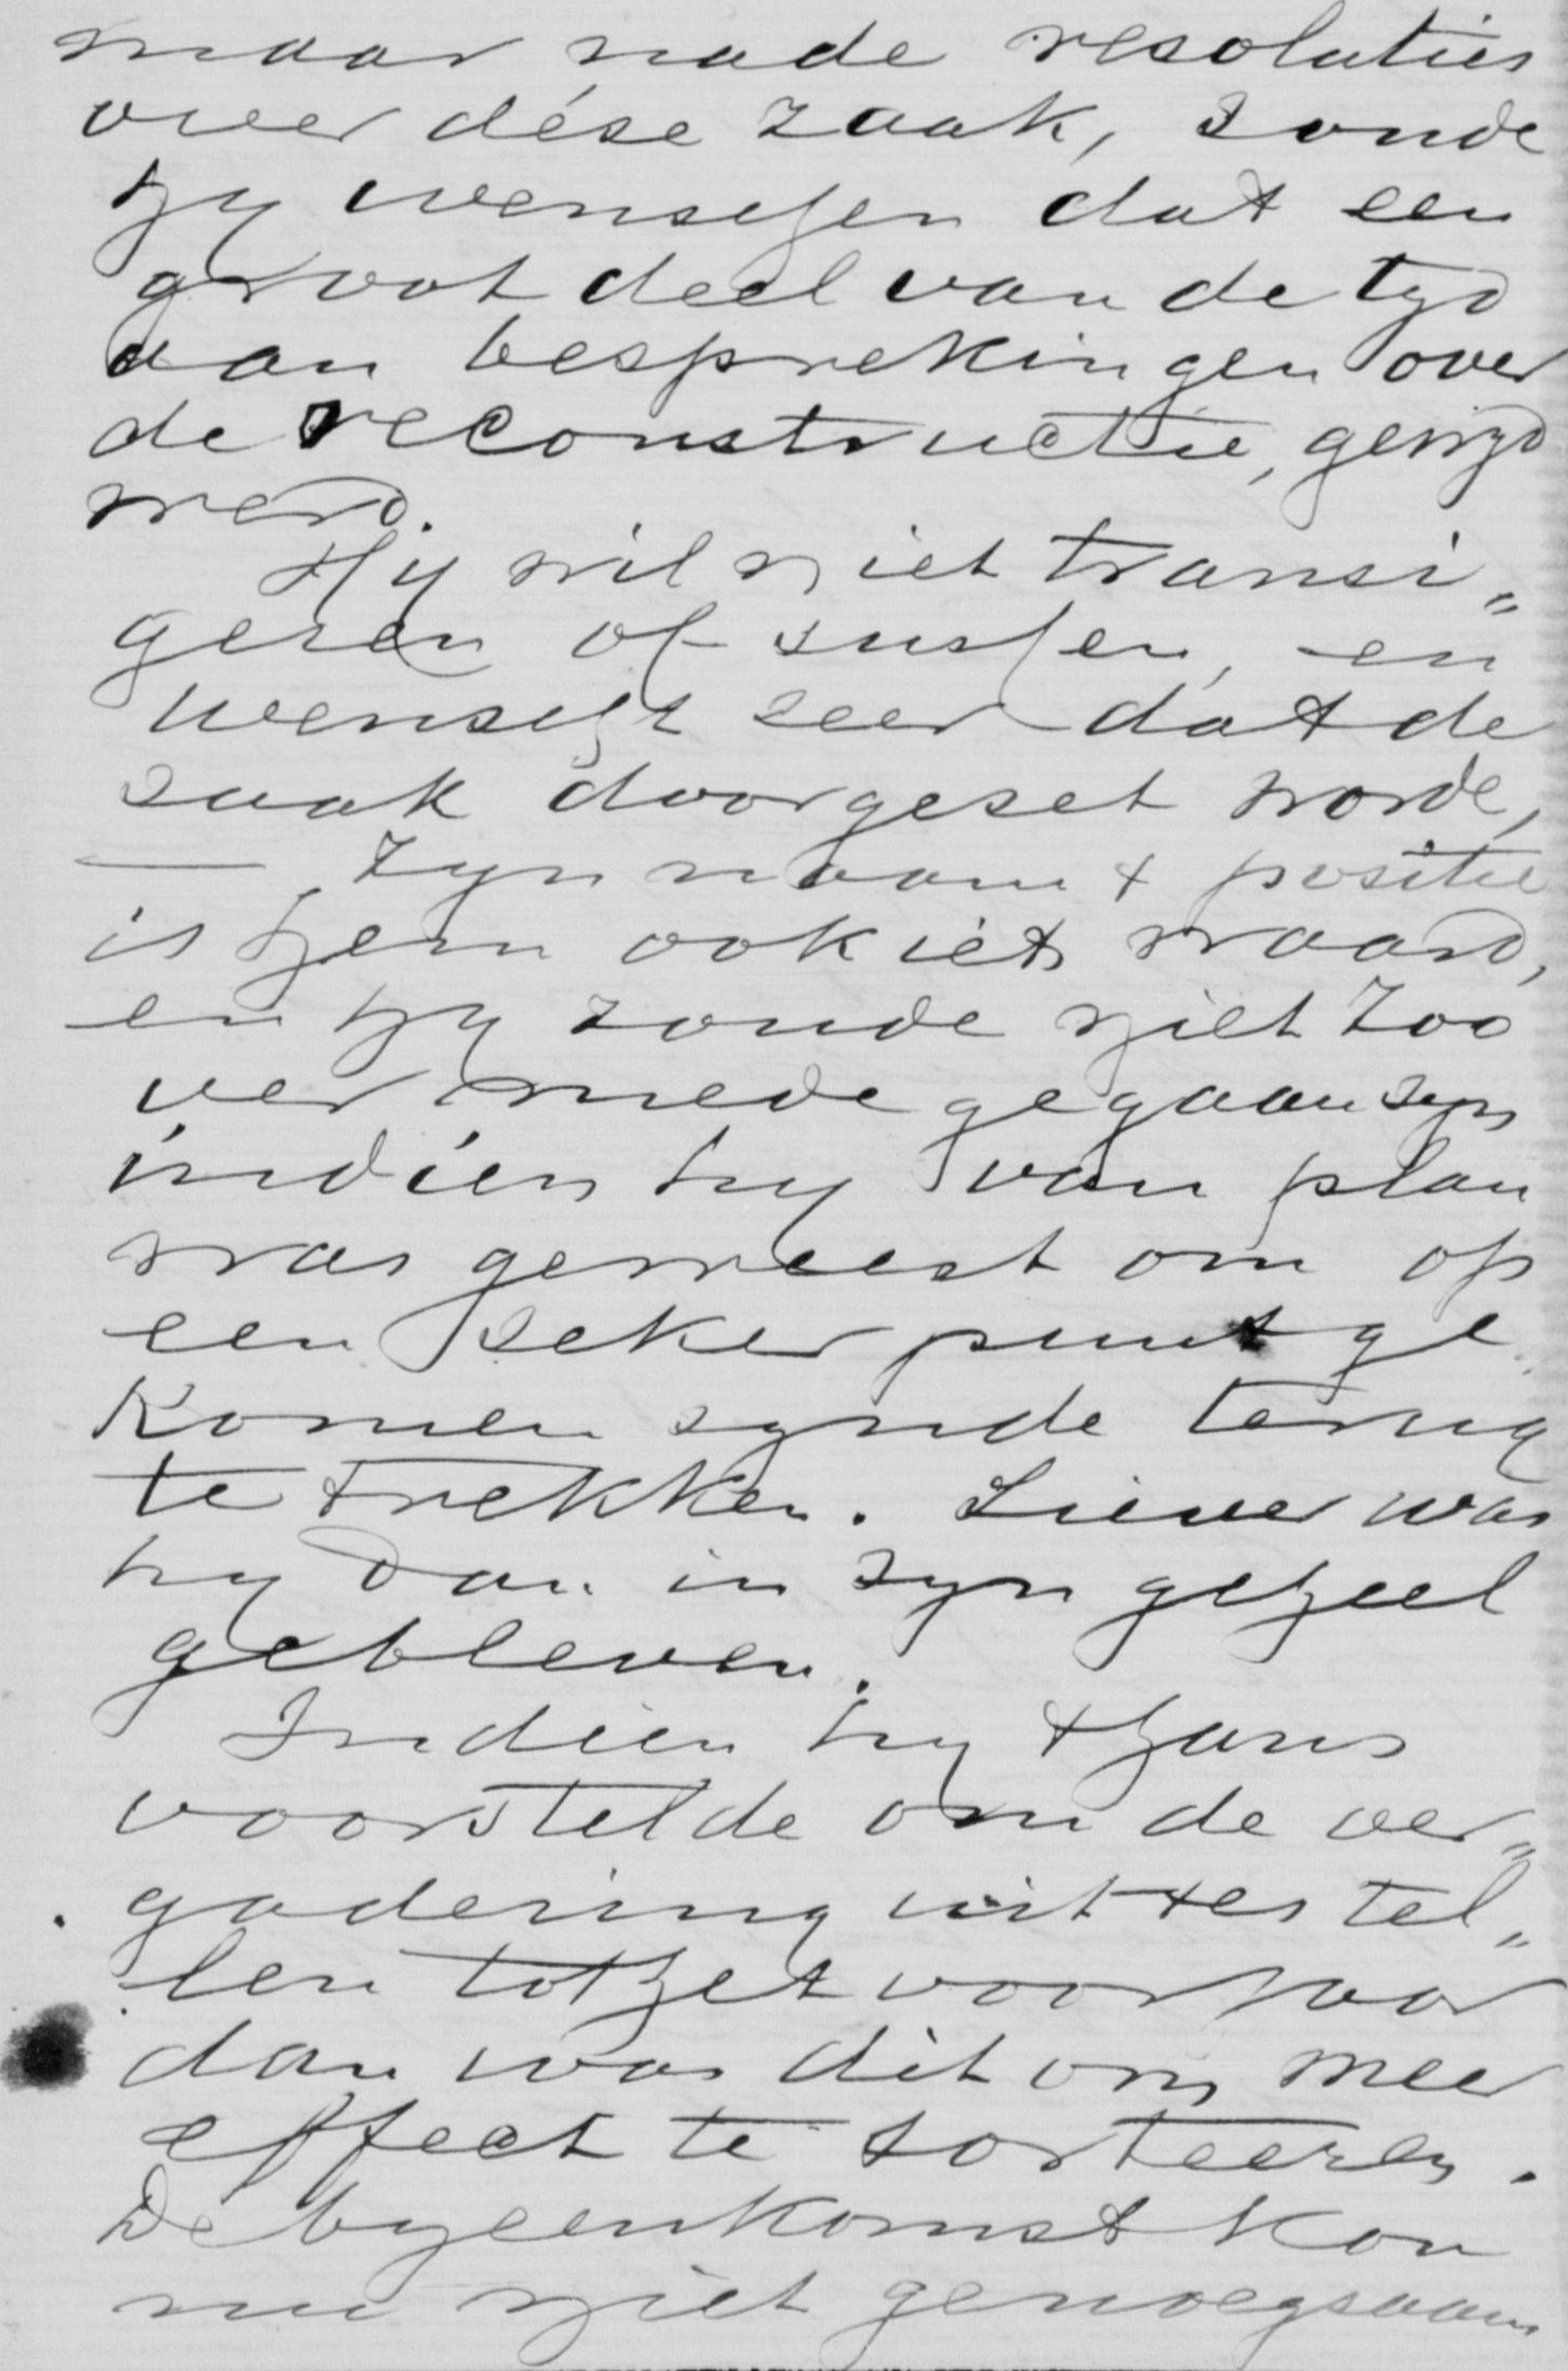 maar nade resolutiën
over dése zaak, soude
hy wenschen dat een
groot deel van de tyd
aan besprekingen over
de reconstructie, gewyd
werd.
Hij wil niet transi„
geren of sussen, en
wenscht seer dat de
saak doorgeset worde,
— Zyn naam + positie
is hem ook iets waard,
en hy zoude niet zoo
ver mede gegaan syn
indien hy van plan
was geweest om op
een seker punt ge
komen synde terug
te trekken. Liever was
hy dan in syn geheel
gebleven.
Indien hy thans
voorstelde om de ver„
gadering uit te stel„
len tot het voorjaar
dan was dit om meer
effect te sorteeren.
De byeenkomst kon
nu niet genoegsaam